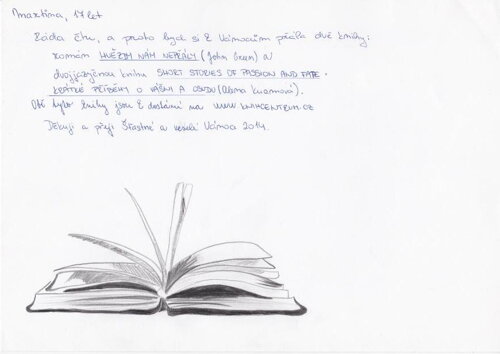 Martina, 17 let
Ráda čtu, a proto bych si k Vánocům přála dvě knihy:
román HVĚZDY NÁM NEPŘÁLY (John Green) a
dvojjazyčnou knihu SHORT STORIES OF PASSION AND FATE -
KRÁTKÉ PŘÍBĚHY O VÁŠNI A OSUDU (Alena Kuzmová).
Obě tyto knihy jsou k dostání na WWW.KNIHCENTRUM.CZ
Děkuji a přeji Šťastné a veselé Vánoce 2014.